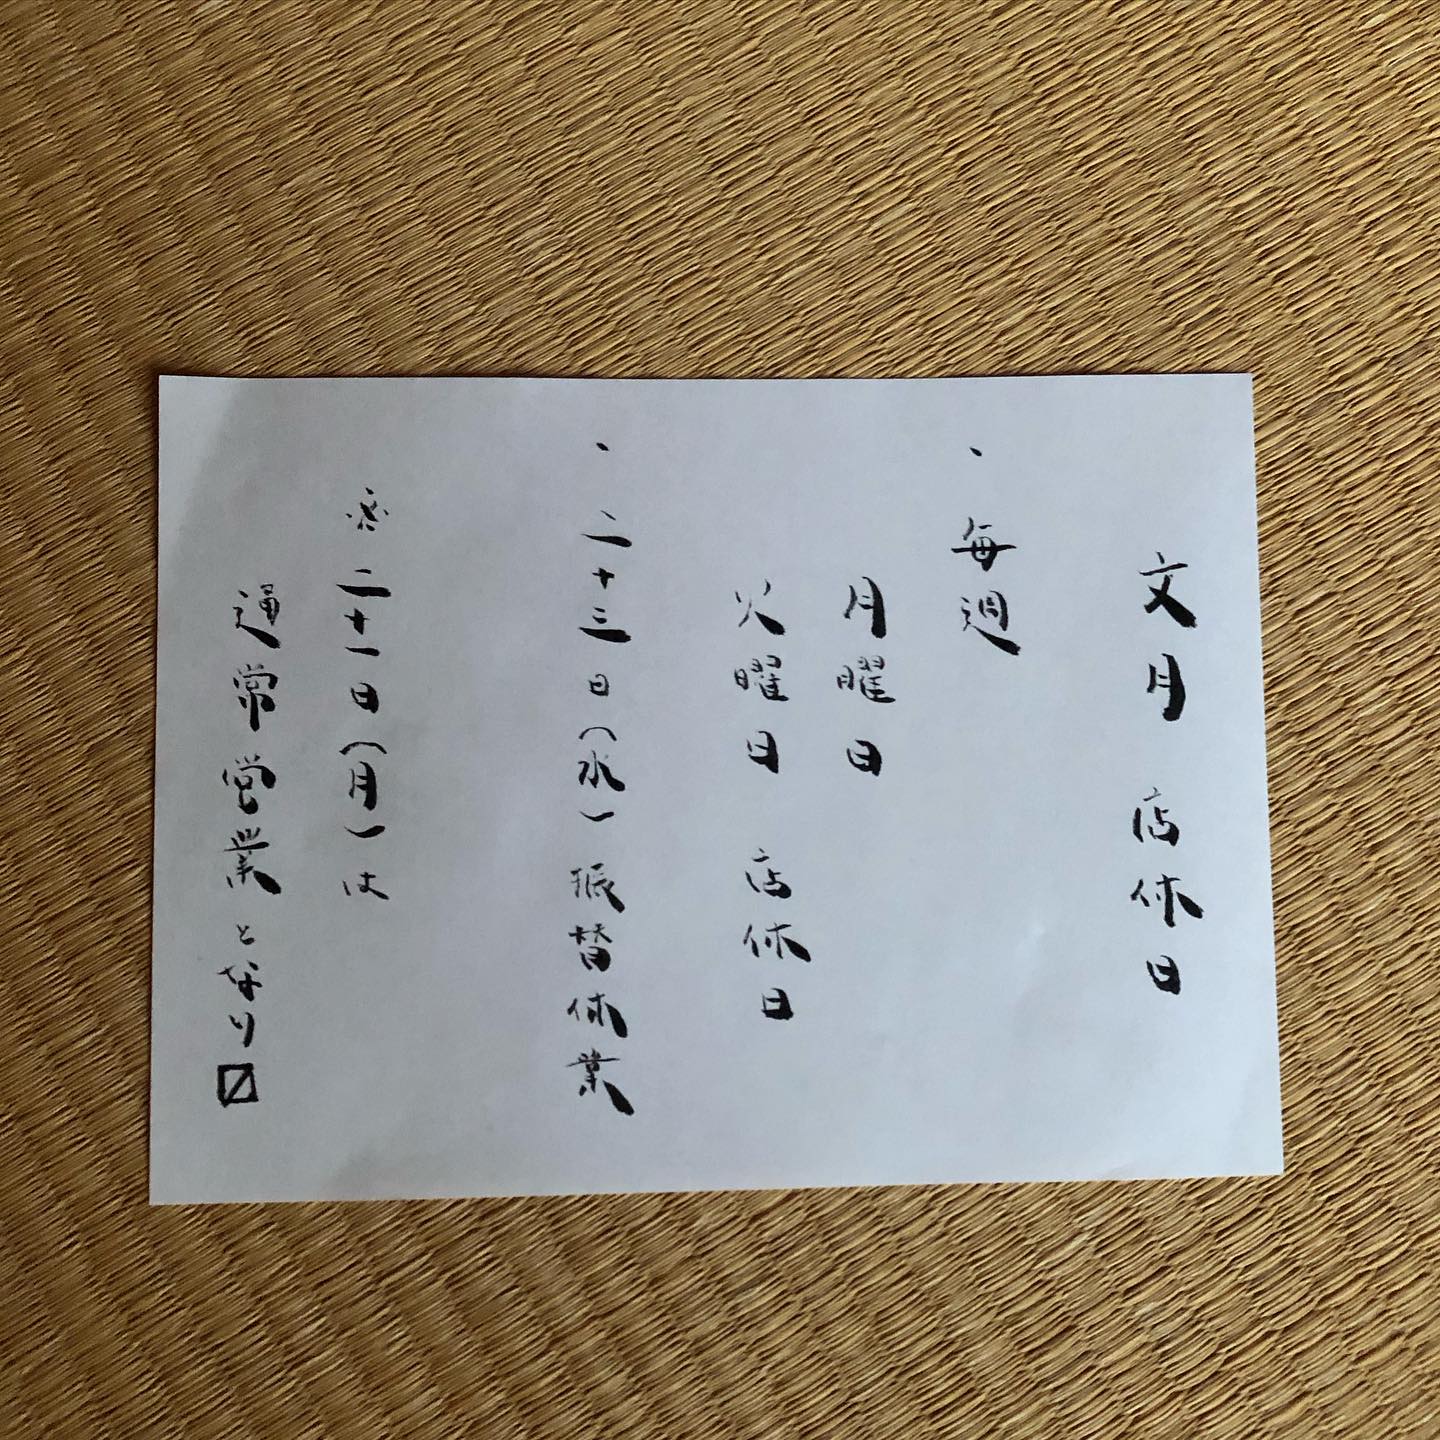 文月 店休日
、毎週
月曜日
火曜日 店休日
、二十三日(水)振替休業
※二十一日(月)は
通常営業となり〼